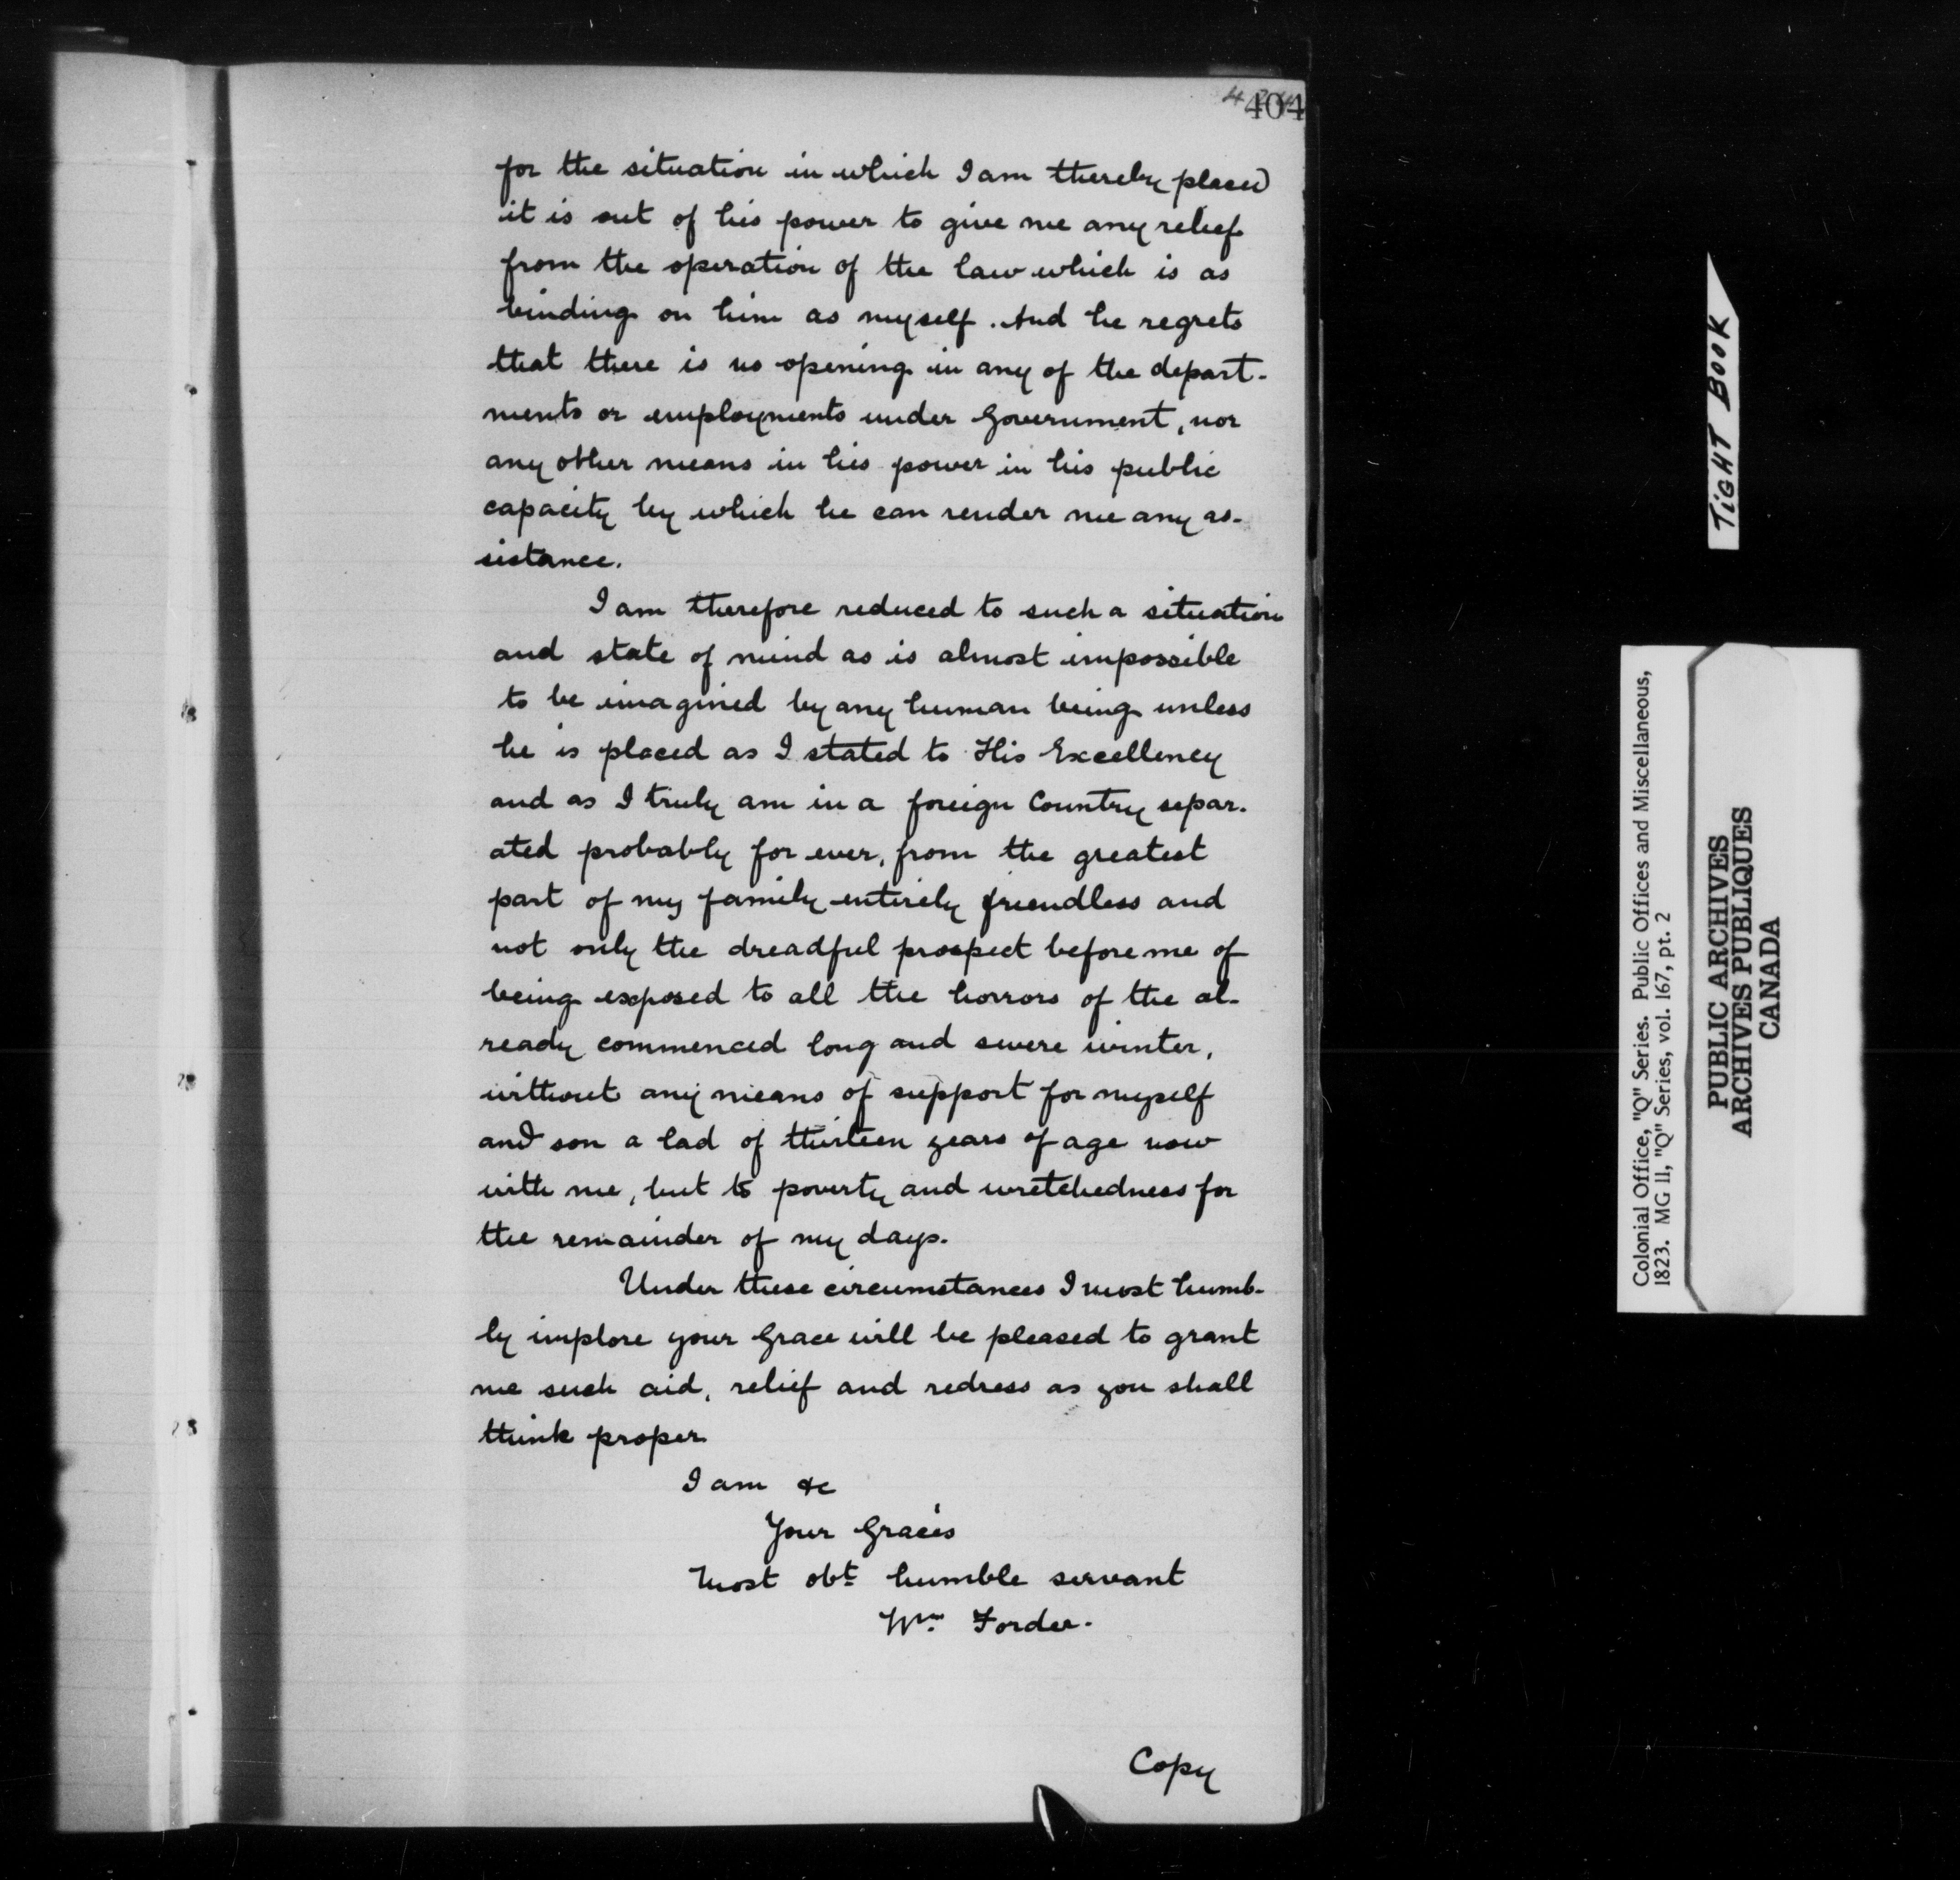 404
for the situation in which I am thereby placed
it is out of his power to give me any relief
from the operation of the law which is as
binding on him as myself. And he regrets
that there is no opening in any of the depart-
ments or employments under Government, nor
any other means in his power in his public
capacity by which he can render me any as-
sistance.
I am therefore reduced to such a situation
and state of mind as is almost impossible
to be imagined by any human being unless
he is placed as I stated to His Excellency
and as I truly am in a foreign Country separ-
ated probably for ever, from the greatest
part of my family entirely friendless and
not only the dreadful prospect before me of
being exposed to all the horrors of the al-
ready commenced long and severe winter,
without any means of support for myself
and son a lad of thirteen years of age now
with me, but to poverty and wretchedness for
the remainder of my days.
Under these circumstances I most humb-
ly implore your Grace will be pleased to grant
me such aid, relief and redress as you shall
think proper
I am &c
Your Grace's
Most obt humble servant
Wm. Forder.
Copy
TIGHT BOOK
Colonial Office, "Q" Series. Public Offices and Miscellaneous,
1823. MG 11, "Q" Series, vol. 167, pt. 2
PUBLIC ARCHIVES
ARCHIVES PUBLIQUES
CANADA